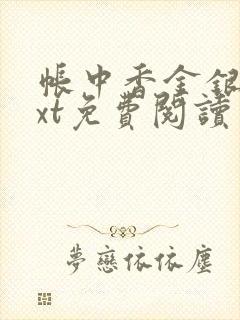 帳中香金銀
xt免費閱讀
夢戀依依塵